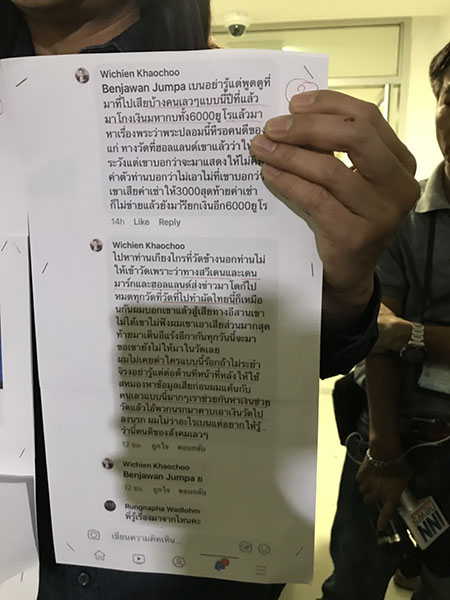 Wichien Khaochoo
Benjawan Jumpa เบนอย่ารู้แต่พูดดูที่
มาที่ไปเสียบ้างคนเลวๆแบบนี้ปีที่แล้ว
มาโกงเงินมหากบทั้ง6000ยูโรแล้วมา
หาเรื่องพระว่าพระปลอมนี้หรือคนดีของ
แก ทางวัดที่ฮอลแลนด์เขาแล้วว่าให้
ระวังแต่เขาบอกว่าจะมาแสดงให้ไม่คิด
ค่าตัวท่านบอกว่าไม่เอาไม่ที่เขาบอกว่า
เขาเสียค่าเช่าให้3000สุดท้ายค่าเช่า
ก็ไม่จ่ายแล้วยังมาเรียกเงินอีก6000ยูโร
14h Like Reply
Wichien Khaochoo
ไปหาท่านเกียงไกรที่วัดข้างนอกท่านไม่
ให้เข้าวัดเพราะว่าทางสวีเดนและเดน
มาร์กและฮอลแลนด์ส่งข่าวมาโดก็ไป
หมดทุกวัดที่วัดที่ไปทำผัดไทยนี้ก็เหมือ
นกันผมบอกเขาแล้วสู้เสียทางอีสานเขา
ไม่ได้เขาไม่ฟังผมเขาเอาเสียส่วนมากสุด
ท้ายมาเต้นอีแร้งอีกากันทุกวันนี้จะมา
ขอเขายังไม่ให้มาในวัดเลย
ผมไม่เคยด่าใครแบบนี้ร๊อกถ้าไม่ระยำ
จริงอย่ารู้แต่ต่อด้านที่หน้าทีหลังให้ใช้
สหมองหาข้อมูลเสียก่อนผมแค้นกับ
คนเลวแบบนี้มากๆเราช่วยกันหาเงินช่วย
วัดแล้วอ้พวกนรกมาคาบเอาเงินวัดไป
ลงนรก ผมไม่ว่าอะไรเบนแต่อยากให้รู้
ว่านี้คนดีของสังคมเลวๆ
12 ชม. ถูกใจ ตอบกลับ
Wichien Khaochoo
Benjawan Jumpa ย
12 ชม. ถูกใจ ตอบกลับ
Rungnapha Wadlohm
พี่รู้เรื่องมาจากไหนคะ
เขียนความคิดเห็น...
GIF
INN
NEWS